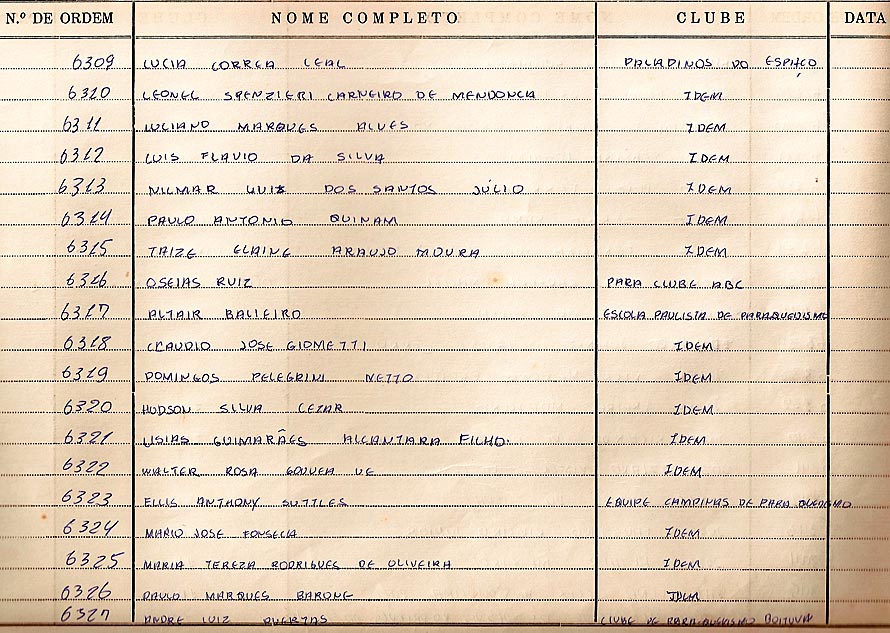 N.º DE ORDEM NOME COMPLETO CLUBE DATA
6309 LUCIA CORREA LEAL PALADINOS DO ESPAÇO
6310 LEONEL SPENZIERI CARNEIRO DE MENDONCIA IDEM
6311 LUCIANO MARQUES ALVES IDEM
6312 LUIS FLAVIO DA SILVA IDEM
6313 NILMAR LUIZ DOS SANTOS JÚLIO IDEM
6314 PAULO ANTONIO QUINAM IDEM
6315 TAIZE ELAINE ARAUJO MOURA IDEM
6316 OSEIAS RUIZ PARA CLUBE ABC
6317 ALTAIR BALIEIRO ESCOLA PAULISTA DE PARAQUEDISMO
6318 CLAUDIO JOSE GIOMETTI IDEM
6319 DOMINGOS PELEGRINI NETTO IDEM
6320 HUDSON SILVA CEZAR IDEM
6321 LISIAS GUIMARÃES ALCANTARA FILHO. IDEM
6322 WALTER ROSA GOUVEA IDEM
6323 ELLIS ANTHONY SUTTLES EQUIPE CAMPINAS DE PARA QUEDISMO
6324 MARIO JOSE FONSECIA IDEM
6325 MARIA TEREZA RODRIGUES DE OLIVEIRA IDEM
6326 PAULO MARQUES BARONE IDEM
6327 ANDRE LUIZ CLUBE DE PARAQUEDISMO BOITUVA